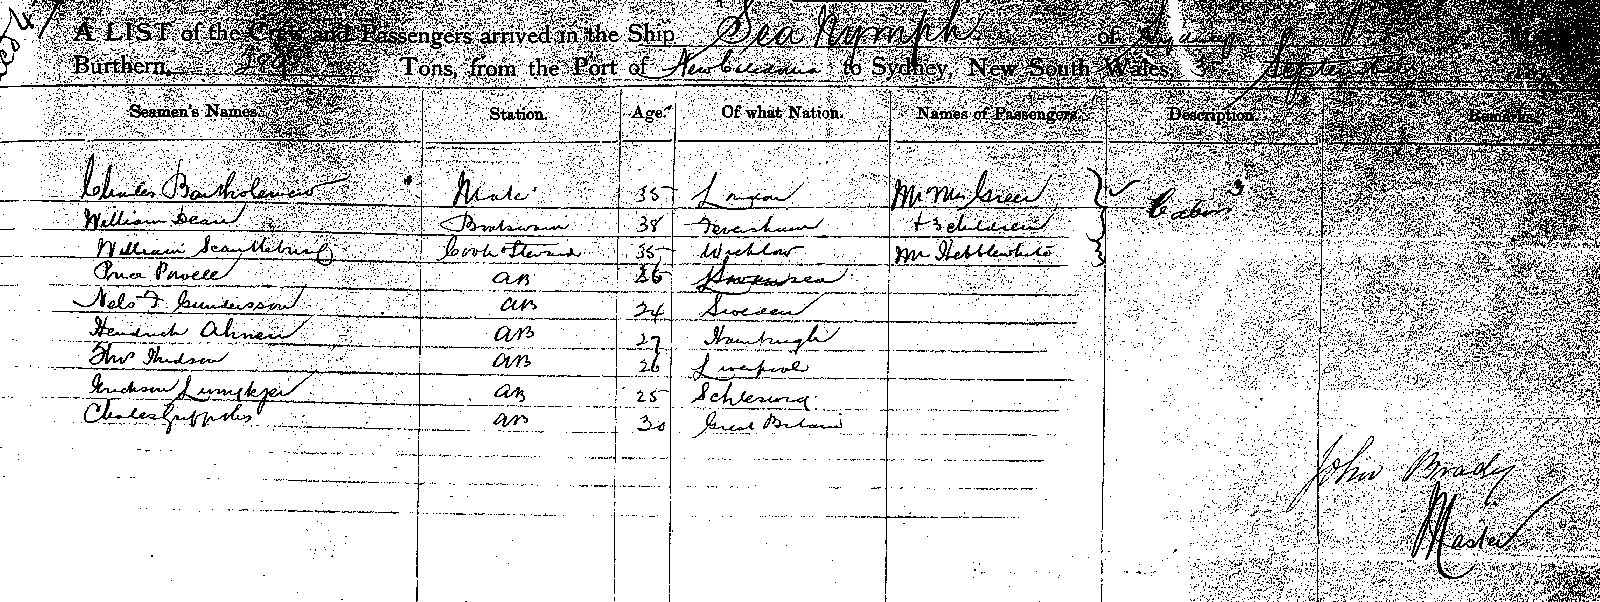 A LIST of the Crew and Passengers arrived in the Ship Sea Nymph of Sydney
Burthern, Tons, from the Port of to Sydney, New South Wales, 3
Seamen's Names. Station. Age. Of what Nation. Names of Passengers. Description. Remarks.
Charles Bartholomew Mate 35 Mr Mrs Green Cabin
William Dean Boatswain 38 Feversham + 3 children
William Cook & Steward 35 Wicklow Mr Hebblewhite
Powell AB Swansea
Nels F Gundersson AB 24 Sweden
Hendrick Ahnen AB 27 Hamburgh
Thos Hudson AB 26 Liverpool
AB 25 Schleswig
Charles AB 30 Great Britain
John Brady
Master